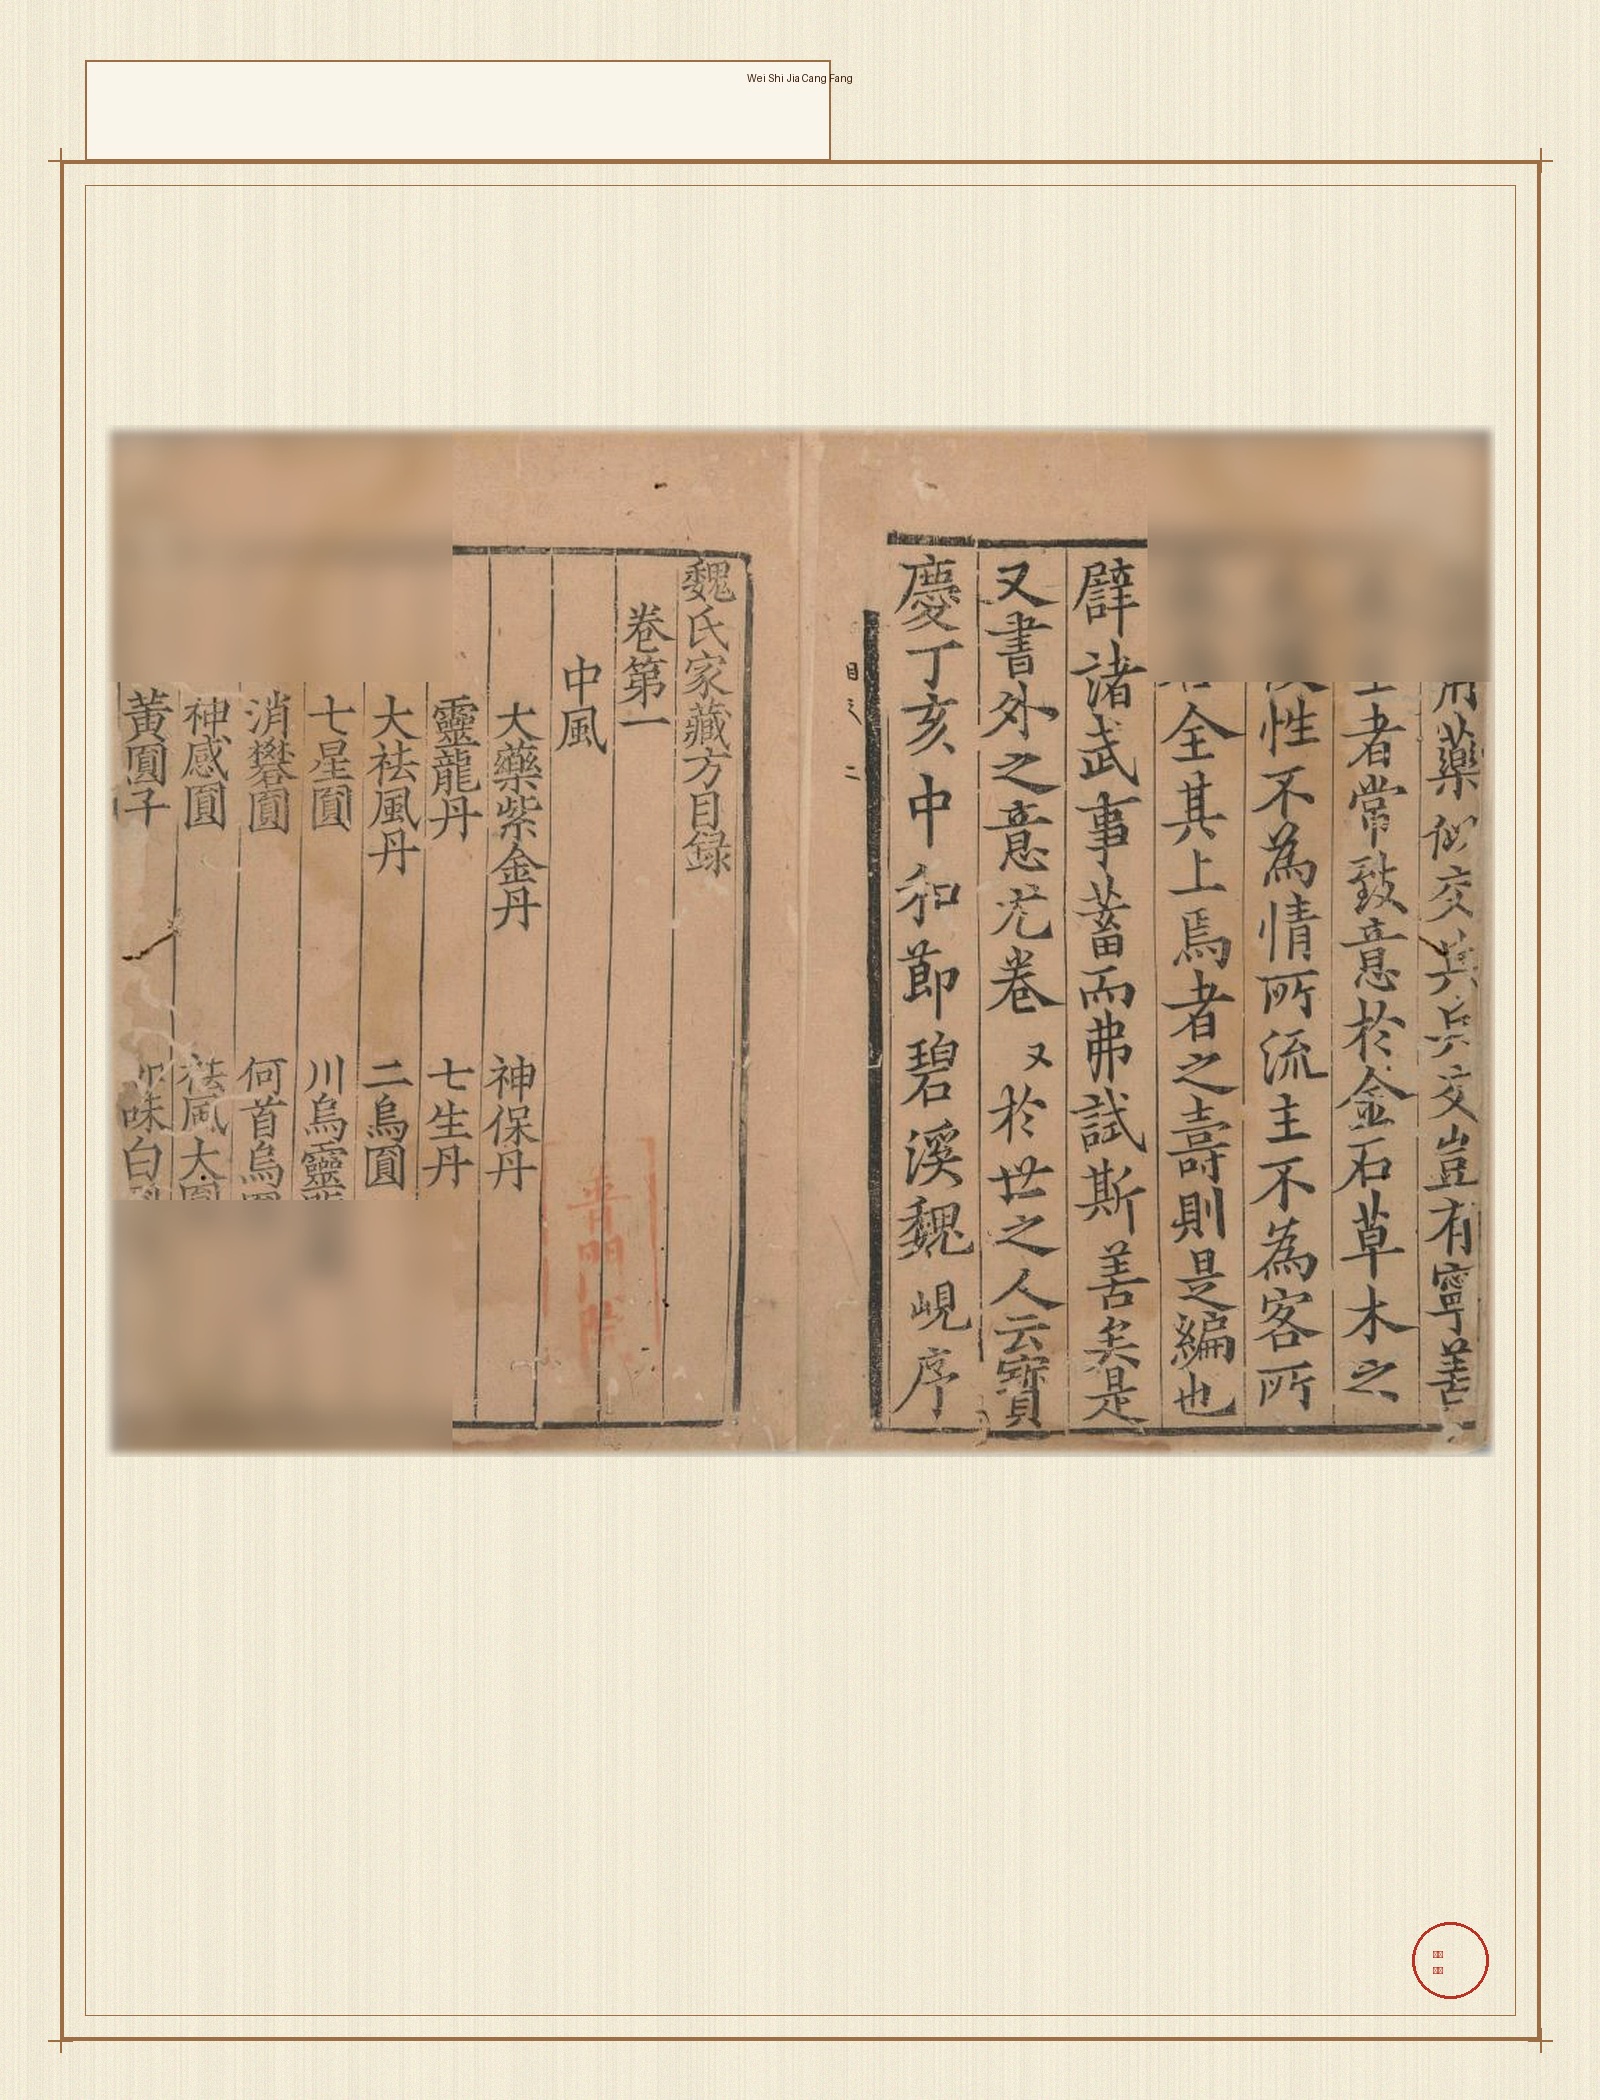 Wei Shi Jia Cang Fang
藥似交兵兵交豈有寧善
者常致意於金石草木之
性不為情所流主不為客所
全其上焉者之壽則是編也
辟諸武事蓄而弗試斯善矣是
又書外之意尤卷又於世之人云寶
慶丁亥中和節碧溪魏峴序
目
二
魏氏家藏方目録
卷第一
中風
大藥紫金丹 神保丹
靈龍丹 七生丹
大祛風丹 二烏圓
七星圓 川烏靈
消礬圓 何首烏
神感圓 祛風大圓
黃圓子 味白